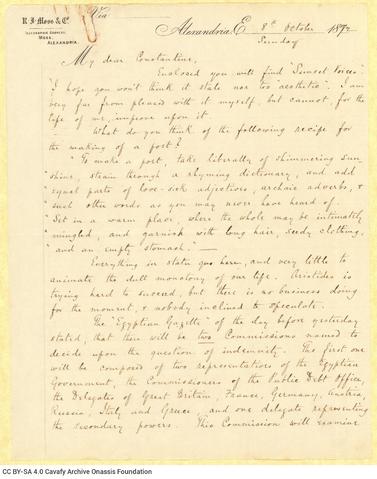 Via
R. J. Moss & Co.
TELEGRAPHIC ADDRESS,
MOSS,
ALEXANDRIA.
Alexandria, E. 8th October 189
Sunday
My dear Constantine,
Enclosed you will find "Sunset Voices"
I hope you won't think it stale nor too "aesthetic". I am
very far from pleased with it myself, but cannot, for the
life of me, improve upon it.
What do you think of the following recipe for
the making of a poet?
"To make a poet, take liberally of shimmering sun
shine, strain through a rhyming dictionary, and add
equal parts of love-sick adjectives, archaic adverbs, &
such other words as you may never have heard of.
Set in a warm place, where the whole may be intimately
mingled, and garnish with long hair, seedy clothing,
"and an empty stomach" —
Everything in statu quo here, and very little to
animate the dull monotony of our life. Aristides is
trying hard to succeed, but there is no business doing
for the moment, & nobody inclined to speculate.
The "Egyptian Gazette" of the day before yesterday
stated, that there will be two Commissions named to
decide upon the question of indemnity. The first one
will be composed of two representatives of the Egyptian
Government, the Commissioners of the Public Debt Office,
the Delegates of Great Britain, France, Germany, Austria,
Russia, Italy and Greece, and one delegate representing
the secondary powers. This Commission will examine
CC BY-SA 4.0 Cavafy Archive Onassis Foundation